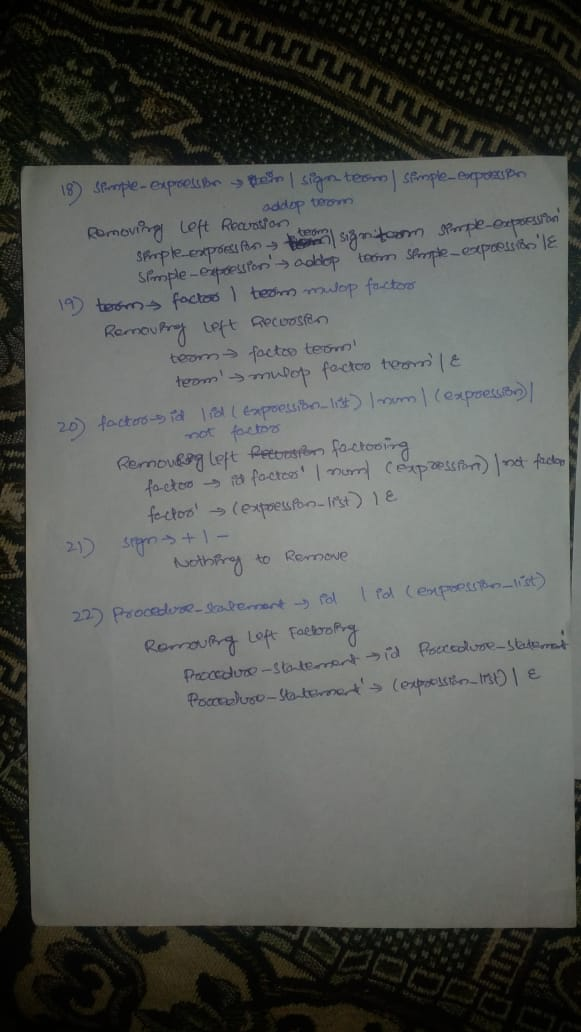 18) Simple-expression → term | sign term | simple-expression
addop term
Removing Left Recursion
Simple-expression → term | sign term simple-expression'
Simple-expression' → addop term simple-expression' | ε
19) term → factor | term mulop factor
Removing Left Recursion
term → factor term'
term' → mulop factor term' | ε
20) factor → id | id (expression-list) | num | (expression) |
not factor
Removing Left Recursion factoring
factor → id factor' | num | (expression) | not factor
factor' → (expression-list) | ε
21) sign → + | -
Nothing to Remove
22) Procedure-statement → id | id (expression-list)
Removing Left Factoring
Procedure-statement → id Procedure-statement'
Procedure-statement' → (expression-list) | ε